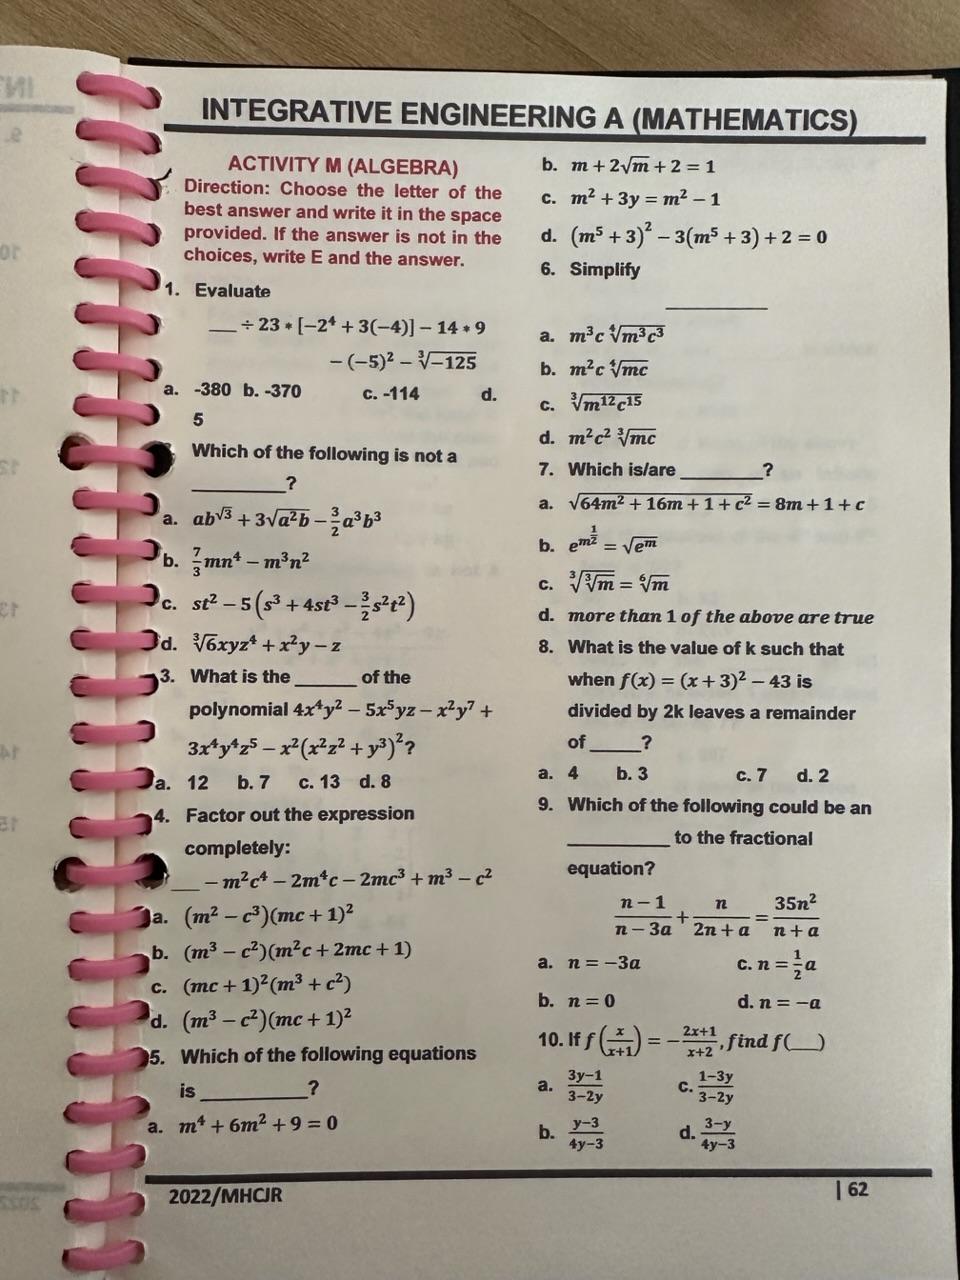 INTEGRATIVE ENGINEERING A (MATHEMATICS)
ACTIVITY M (ALGEBRA)
Direction: Choose the letter of the
best answer and write it in the space
provided. If the answer is not in the
choices, write E and the answer.
1. Evaluate
___ ÷ 23 * [−2⁴ + 3(−4)] − 14 * 9
− (−5)² − ∛−125
a. -380 b. -370 c. -114 d.
5
Which of the following is not a
__________?
a. ab^√3 + 3√a²b − 3/2 a³b³
b. 7/3 mn⁴ − m³n²
c. st² − 5(s³ + 4st³ − 3/2 s²t²)
d. ∛6xyz⁴ + x²y − z
3. What is the ______ of the
polynomial 4x⁴y² − 5x⁵yz − x²y⁷ +
3x⁴y⁴z⁵ − x²(x²z² + y³)²?
a. 12 b. 7 c. 13 d. 8
4. Factor out the expression
completely:
___ − m²c⁴ − 2m⁴c − 2mc³ + m³ − c²
a. (m² − c³)(mc + 1)²
b. (m³ − c²)(m²c + 2mc + 1)
c. (mc + 1)²(m³ + c²)
d. (m³ − c²)(mc + 1)²
5. Which of the following equations
is __________?
a. m⁴ + 6m² + 9 = 0
b. m + 2√m + 2 = 1
c. m² + 3y = m² − 1
d. (m⁵ + 3)² − 3(m⁵ + 3) + 2 = 0
6. Simplify
__________
a. m³c ∜m³c³
b. m²c ∜mc
c. ∛m¹²c¹⁵
d. m²c² ∛mc
7. Which is/are ________?
a. √64m² + 16m + 1 + c² = 8m + 1 + c
b. e^m^1/2 = √e^m
c. ∛∛m = ⁶√m
d. more than 1 of the above are true
8. What is the value of k such that
when f(x) = (x + 3)² − 43 is
divided by 2k leaves a remainder
of _____?
a. 4 b. 3 c. 7 d. 2
9. Which of the following could be an
__________ to the fractional
equation?
(n − 1)/(n − 3a) + n/(2n + a) = 35n²/(n + a)
a. n = −3a c. n = 1/2 a
b. n = 0 d. n = −a
10. If f(x/(x+1)) = −(2x+1)/(x+2), find f(___)
a. (3y−1)/(3−2y) c. (1−3y)/(3−2y)
b. (y−3)/(4y−3) d. (3−y)/(4y−3)
2022/MHCJR | 62